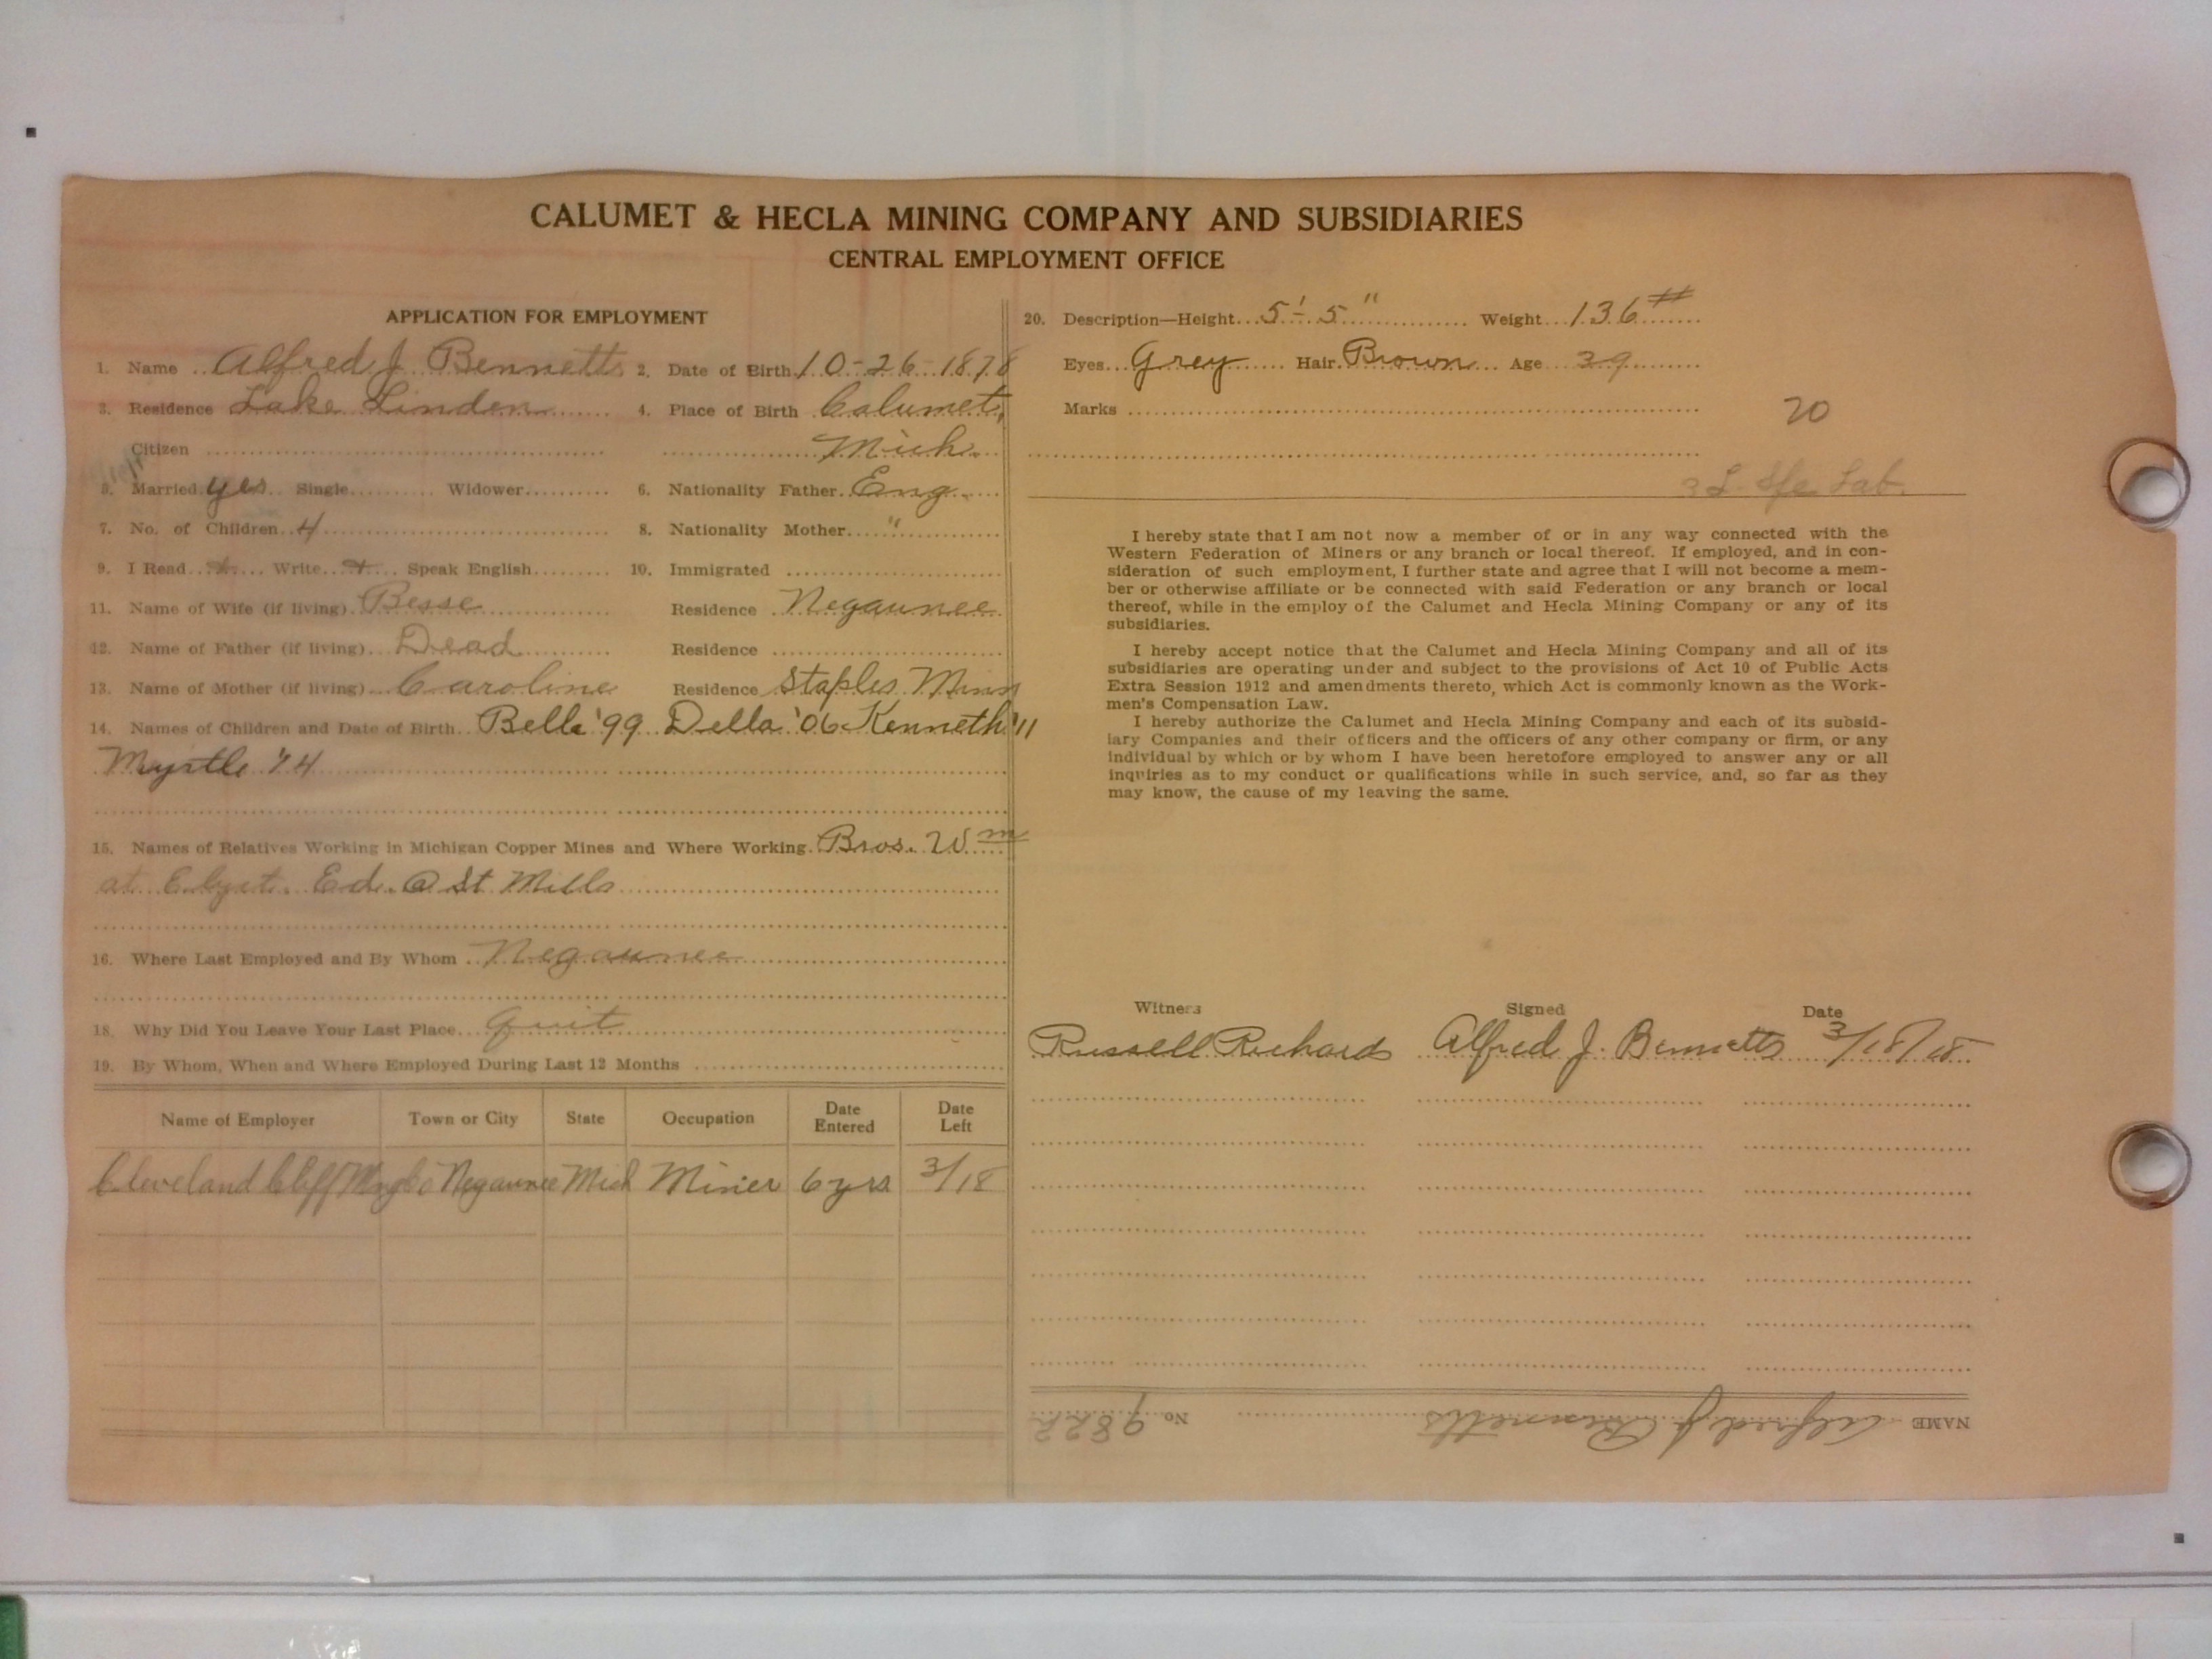 CALUMET & HECLA MINING COMPANY AND SUBSIDIARIES
CENTRAL EMPLOYMENT OFFICE
APPLICATION FOR EMPLOYMENT
1. Name Alfred J Bennetts 2. Date of Birth 10-26-1878
3. Residence Lake Linden 4. Place of Birth Calumet,
Citizen Mich.
5. Married yes Single Widower 6. Nationality Father Eng.
7. No. of Children 4 8. Nationality Mother "
9. I Read Write Speak English 10. Immigrated
11. Name of Wife (if living) Besse Residence Negaunee
12. Name of Father (if living) Dead Residence
13. Name of Mother (if living) Caroline Residence Staples Minn
14. Names of Children and Date of Birth Bella '99 Della '06 Kenneth '11
Myrtle '14
15. Names of Relatives Working in Michigan Copper Mines and Where Working. Bros. Wm
at Ed. @ St Mills
16. Where Last Employed and By Whom Negaunee
18. Why Did You Leave Your Last Place Quit
19. By Whom, When and Where Employed During Last 12 Months
Name of Employer Town or City State Occupation Date Entered Date Left
Cleveland Cliff Mng Co Negaunee Mich Miner 6 yrs 3/18
20. Description—Height 5'-5" Weight 136#
Eyes Grey Hair Brown Age 39
Marks
20
Lab.
I hereby state that I am not now a member of or in any way connected with the
Western Federation of Miners or any branch or local thereof. If employed, and in con-
sideration of such employment, I further state and agree that I will not become a mem-
ber or otherwise affiliate or be connected with said Federation or any branch or local
thereof, while in the employ of the Calumet and Hecla Mining Company or any of its
subsidiaries.
I hereby accept notice that the Calumet and Hecla Mining Company and all of its
subsidiaries are operating under and subject to the provisions of Act 10 of Public Acts
Extra Session 1912 and amendments thereto, which Act is commonly known as the Work-
men's Compensation Law.
I hereby authorize the Calumet and Hecla Mining Company and each of its subsid-
iary Companies and their officers and the officers of any other company or firm, or any
individual by which or by whom I have been heretofore employed to answer any or all
inquiries as to my conduct or qualifications while in such service, and, so far as they
may know, the cause of my leaving the same.
Witness Signed Date
Russell Richards Alfred J. Bennetts 3/18/18
NAME Alfred J Bennetts No. 9822